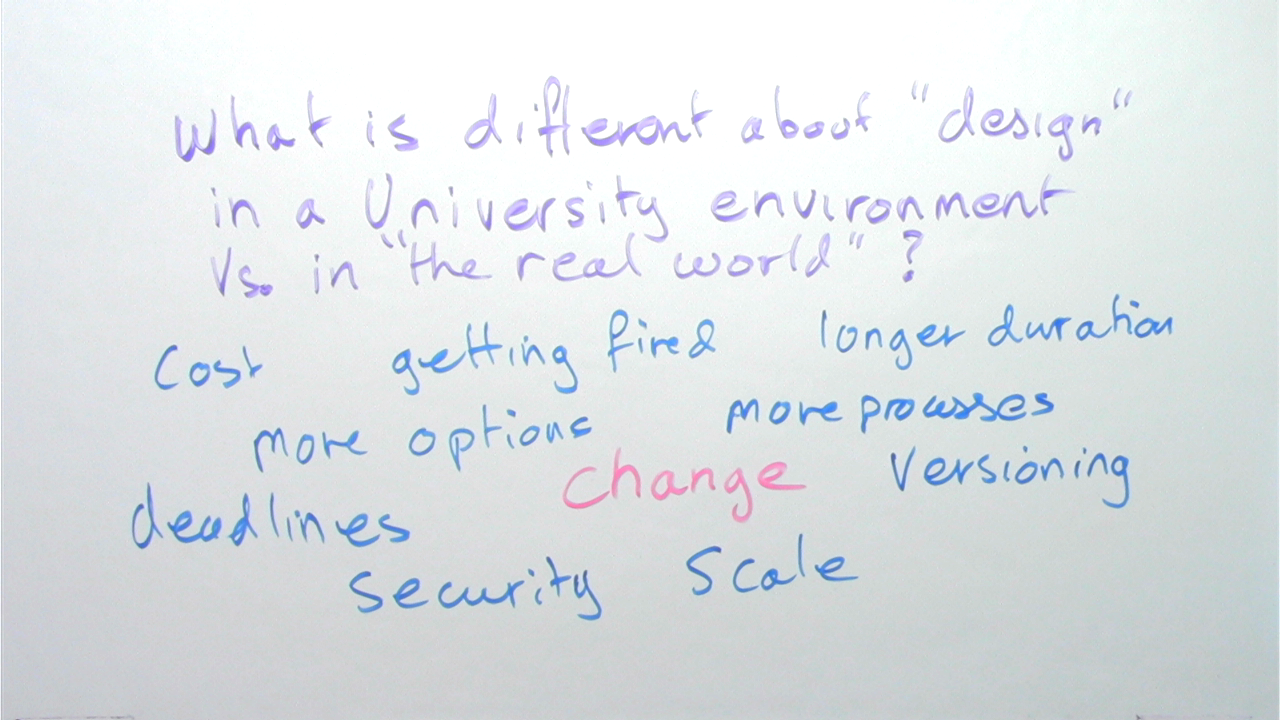 What is different about "design"
in a University environment
Vs. in "the real world" ?
Cost getting fired longer duration
more options more processes
change Versioning
deadlines
security Scale